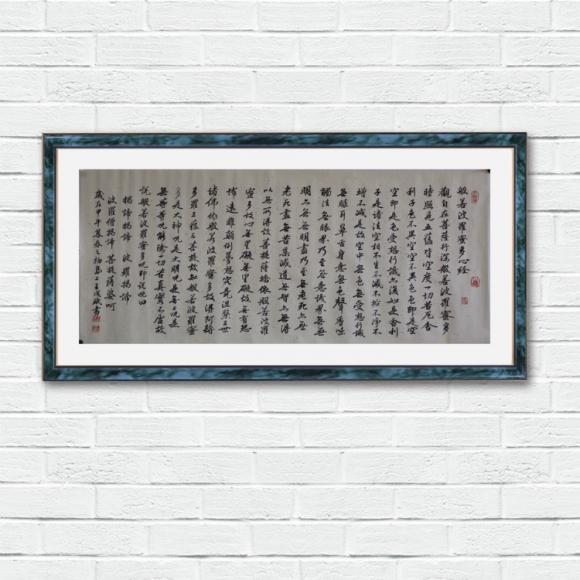 般若波羅蜜多心經
觀自在菩薩行深般若波羅蜜多
時照見五蘊皆空度一切苦厄舍
利子色不異空空不異色色即是空
空即是色受想行識亦復如是舍利
子是諸法空相不生不滅不垢不淨不
增不減是故空中無色無受想行識
無眼耳鼻舌身意無色聲香味
觸法無眼界乃至無意識界無無
明亦無無明盡乃至無老死亦無
老死盡無苦集滅道無智亦無得
以無所得故菩提薩埵依般若波羅
蜜多故心無罣礙無罣礙故無有恐
怖遠離顛倒夢想究竟涅槃三世
諸佛依般若波羅蜜多故得阿耨
多羅三藐三菩提故知般若波羅蜜
多是大神咒是大明咒是無上咒是
無無等咒能除一切苦真實不虛故
說般若波羅蜜多咒即說咒曰
揭諦揭諦 波羅揭諦
波羅僧揭諦 菩提薩婆訶
歲在甲午暮春